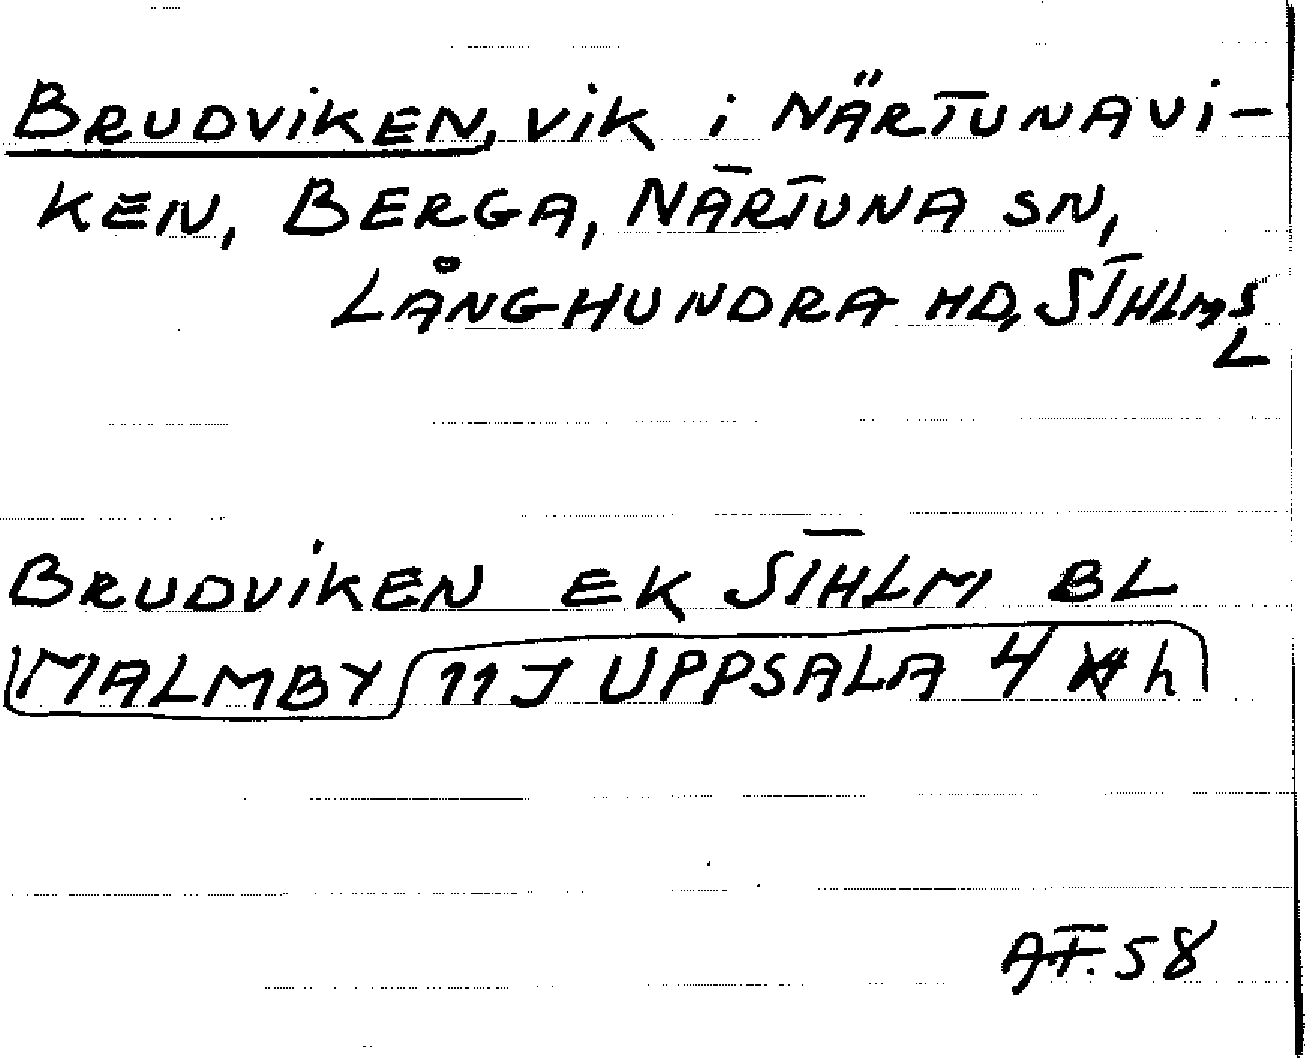 BRUDVIKEN, VIK i NÄRTUNAVI-
KEN, BERGA, NÄRTUNA SN,
LÅNGHUNDRA HD, STHLMS
L
BRUDVIKEN EK STHLM BL
MALMBY 11 J UPPSALA 4 h
AF. 58